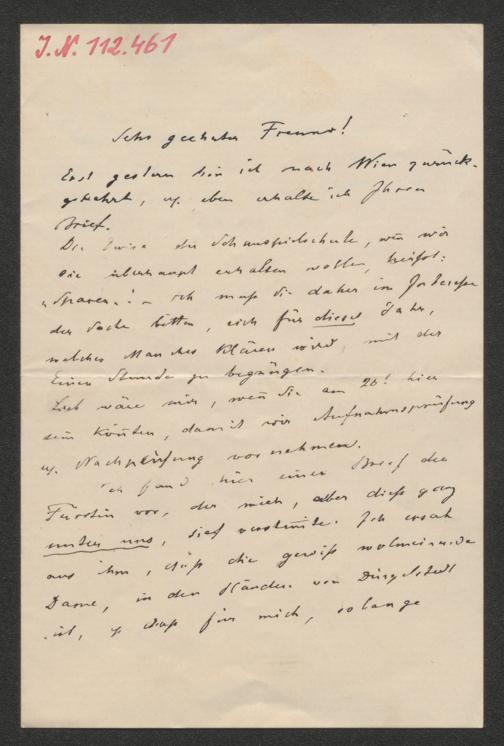 J.N. 112.461
Sehr geehrter Freund!
Erst gestern bin ich nach Wien zurück-
gekehrt, u. eben erhalte ich Ihren
Brief.
Die Devise der Schauspielschule, wen wir
sie überhaupt erhalten wollen, heißt:
„Sparen"! – ich muß Sie daher im Interesse
der Sache bitten, sich für dieses Jahr,
welches Manches klären wird, mit der
Einen Stunde zu begnügen.
Lieb wäre mir, wen Sie am 20! hier
sein könten, damit wir Aufnahmsprüfung
u. Nachprüfung vornehmen.
Ich fand hier einen Brief der
Fürstin vor, der mich, aber dieß ganz
unter uns, tief verstimte. Ich ersah
aus ihm, daß die gewiß wolmeinende
Dame, in den Händen von Dingelstedt
ist, u. daß für mich, solange